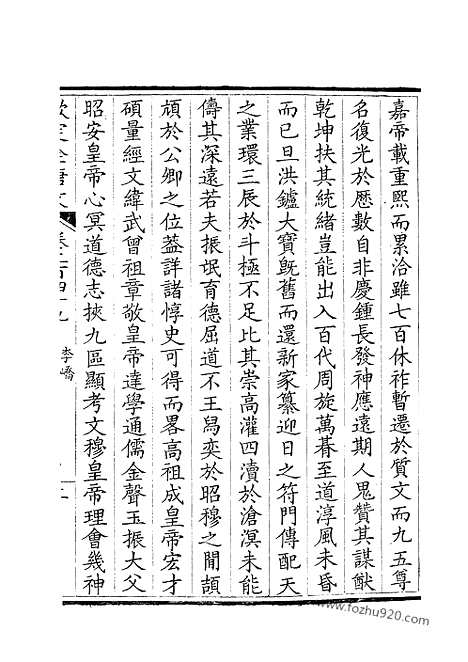 嘉帝載重熙而累洽雖七百休祚暫遷於質文而九五尊
名復光於歷數自非慶鍾長發神應遠期人鬼贊其謀猷
乾坤扶其統緒豈能出入百代周旋萬朞至道淳風未昏
而已旦洪鑪大寶旣舊而還新家纂迎日之符門傳配天
之業環三辰於斗極不足比其崇高灌四瀆於滄溟未能
儔其深遠若夫振氓育德屈道不王爲奕於昭穆之閒頡
頏於公卿之位葢詳諸惇史可得而畧高祖成皇帝宏才
碩量經文緯武曾祖章敬皇帝達學通儒金聲玉振大父
昭安皇帝心冥道德志挾九區顯考文穆皇帝理會幾神
欽定全唐文 卷二百四十九 李嶠
www.fozhu920.com